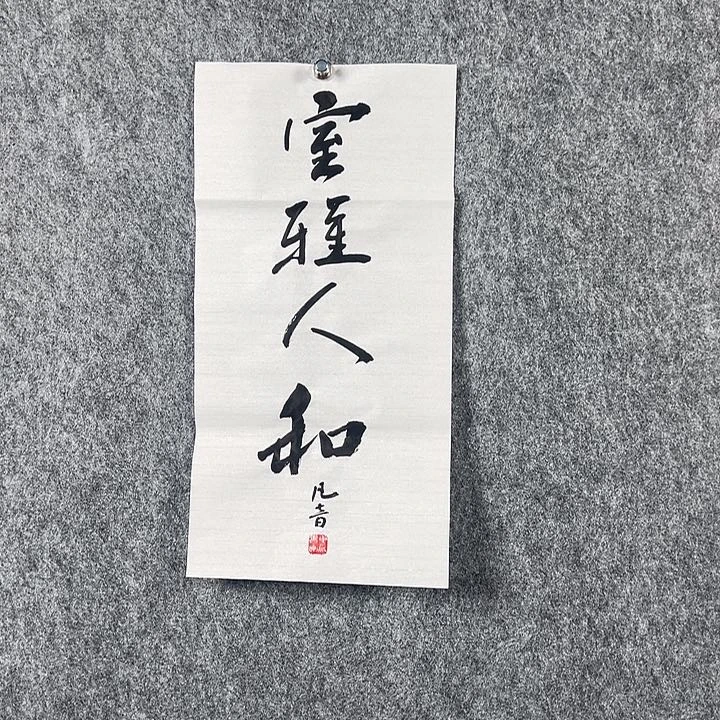 室雅人和
凡音